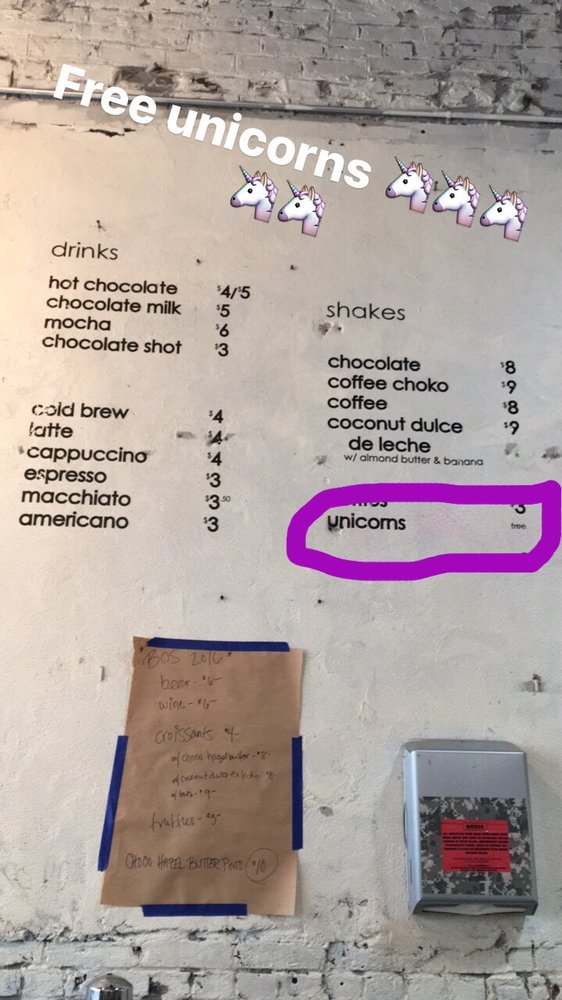 Free unicorns
drinks
hot chocolate $4/$5
chocolate milk $5
mocha $6
chocolate shot $3
cold brew $4
latte $4
cappuccino $4
espresso $3
macchiato $3.50
americano $3
shakes
chocolate $8
coffee choko $9
coffee $8
coconut dulce $9
de leche
w/ almond butter & banana
$3
unicorns free
"BOS 2016"
beer - $6-
wine - $6-
croissants - $4-
w/ choco hazel butter - $8-
w/ coconut dulce de leche - $8
w/ both - $9-
truffles - $3-
CHOCO HAZEL BUTTER PINTS - $10